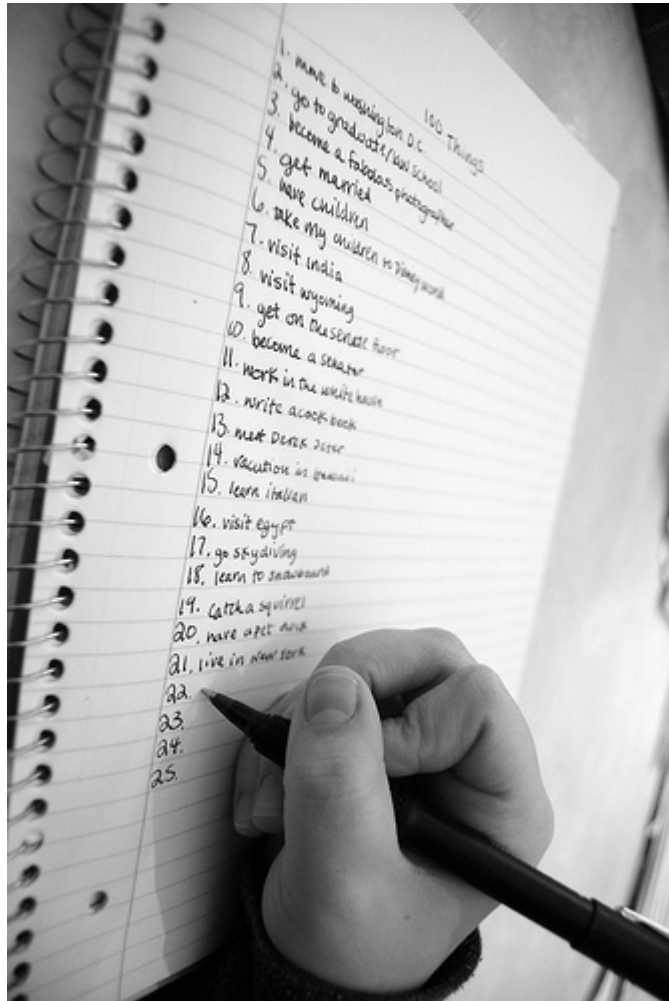 100 Things
1. move to washington D.C.
2. go to graduate/law school
3. become a fabolous photographer
4. get married
5. have children
6. take my children to Disney world
7. visit india
8. visit wyoming
9. get on the senate floor
10. become a senator
11. work in the white house
12. write a cook book
13. meet Derek Jeter
14. vacation in hawaii
15. learn italian
16. visit egypt
17. go skydiving
18. learn to snowboard
19. catch a squirrel
20. have a pet duck
21. live in new york
22.
23.
24.
25.